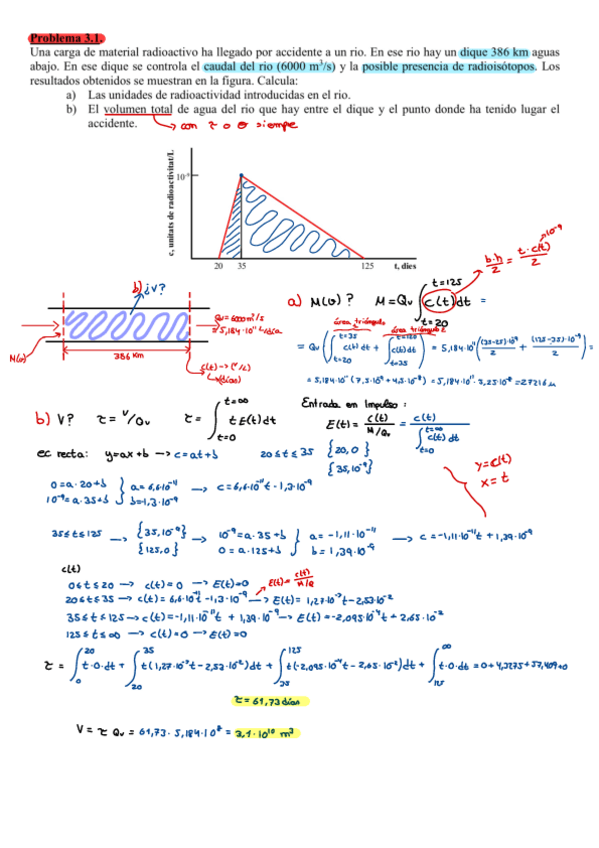 Problema 3.1.
Una carga de material radioactivo ha llegado por accidente a un rio. En ese rio hay un dique 386 km aguas
abajo. En ese dique se controla el caudal del rio (6000 m³/s) y la posible presencia de radioisótopos. Los
resultados obtenidos se muestran en la figura. Calcula:
a) Las unidades de radioactividad introducidas en el rio.
b) El volumen total de agua del rio que hay entre el dique y el punto donde ha tenido lugar el
accidente.
con τ o θ siempre
c, unitats de radioactivitat/L
10⁻⁹
20 35 125 t, dies
b) ¿V?
Qv = 6000 m³/s
= 5,184·10¹¹ L/día
M(υ)
386 Km
c(t) → (υ/L)
(días)
a) M(υ)? M = Qv ∫ c(t) dt =
t=125
t=20
b·h/2 = t·c(t)/2
10⁻⁹
área triángulo área triángulo 2
= Qv ( ∫ c(t) dt + ∫ c(t) dt ) = 5,184·10¹¹ ( (35-20)·10⁻⁹/2 + (125-35)·10⁻⁹/2 ) =
t=35
t=20
t=35
= 5,184·10¹¹ (7,5·10⁻⁹ + 4,5·10⁻⁸) = 5,184·10¹¹ · 5,25·10⁻⁸ = 27216 u
b) V? τ = V/Qv τ = ∫ t E(t) dt
t=∞
t=0
Entrada en Impulso:
E(t) = c(t) / M/Qv = c(t) / ∫ c(t) dt
t=∞
t=0
ec recta: y=ax+b → c=at+b 20 ≤ t ≤ 35 {20, 0} {35, 10⁻⁹}
y=c(t)
x=t
0=a·20+b
10⁻⁹=a·35+b
a=6,6·10⁻¹¹
b=-1,3·10⁻⁹
→ c=6,6·10⁻¹¹t - 1,3·10⁻⁹
35 ≤ t ≤ 125 → {35, 10⁻⁹} {125, 0} → 10⁻⁹=a·35+b
0=a·125+b
a=-1,11·10⁻¹¹
b=1,39·10⁻⁹
→ c=-1,11·10⁻¹¹t + 1,39·10⁻⁹
c(t)
0 ≤ t ≤ 20 → c(t)=0 → E(t)=0
E(t)= c(t) / M/Q
20 ≤ t ≤ 35 → c(t)=6,6·10⁻¹¹t - 1,3·10⁻⁹ → E(t)=1,27·10⁻³t - 2,53·10⁻²
35 ≤ t ≤ 125 → c(t)=-1,11·10⁻¹¹t + 1,39·10⁻⁹ → E(t)=-2,095·10⁻⁴t + 2,65·10⁻²
125 ≤ t ≤ ∞ → c(t)=0 → E(t)=0
τ = ∫ t·0·dt + ∫ t(1,27·10⁻³t - 2,53·10⁻²)dt + ∫ t(-2,095·10⁻⁴t - 2,65·10⁻²)dt + ∫ t·0·dt = 0 + 4,3275 + 57,409 + 0
20 35 125 ∞
0 20 35 125
τ = 61,73 días
V = τ Qv = 61,73 · 5,184·10⁸ = 3,1·10¹⁰ m³